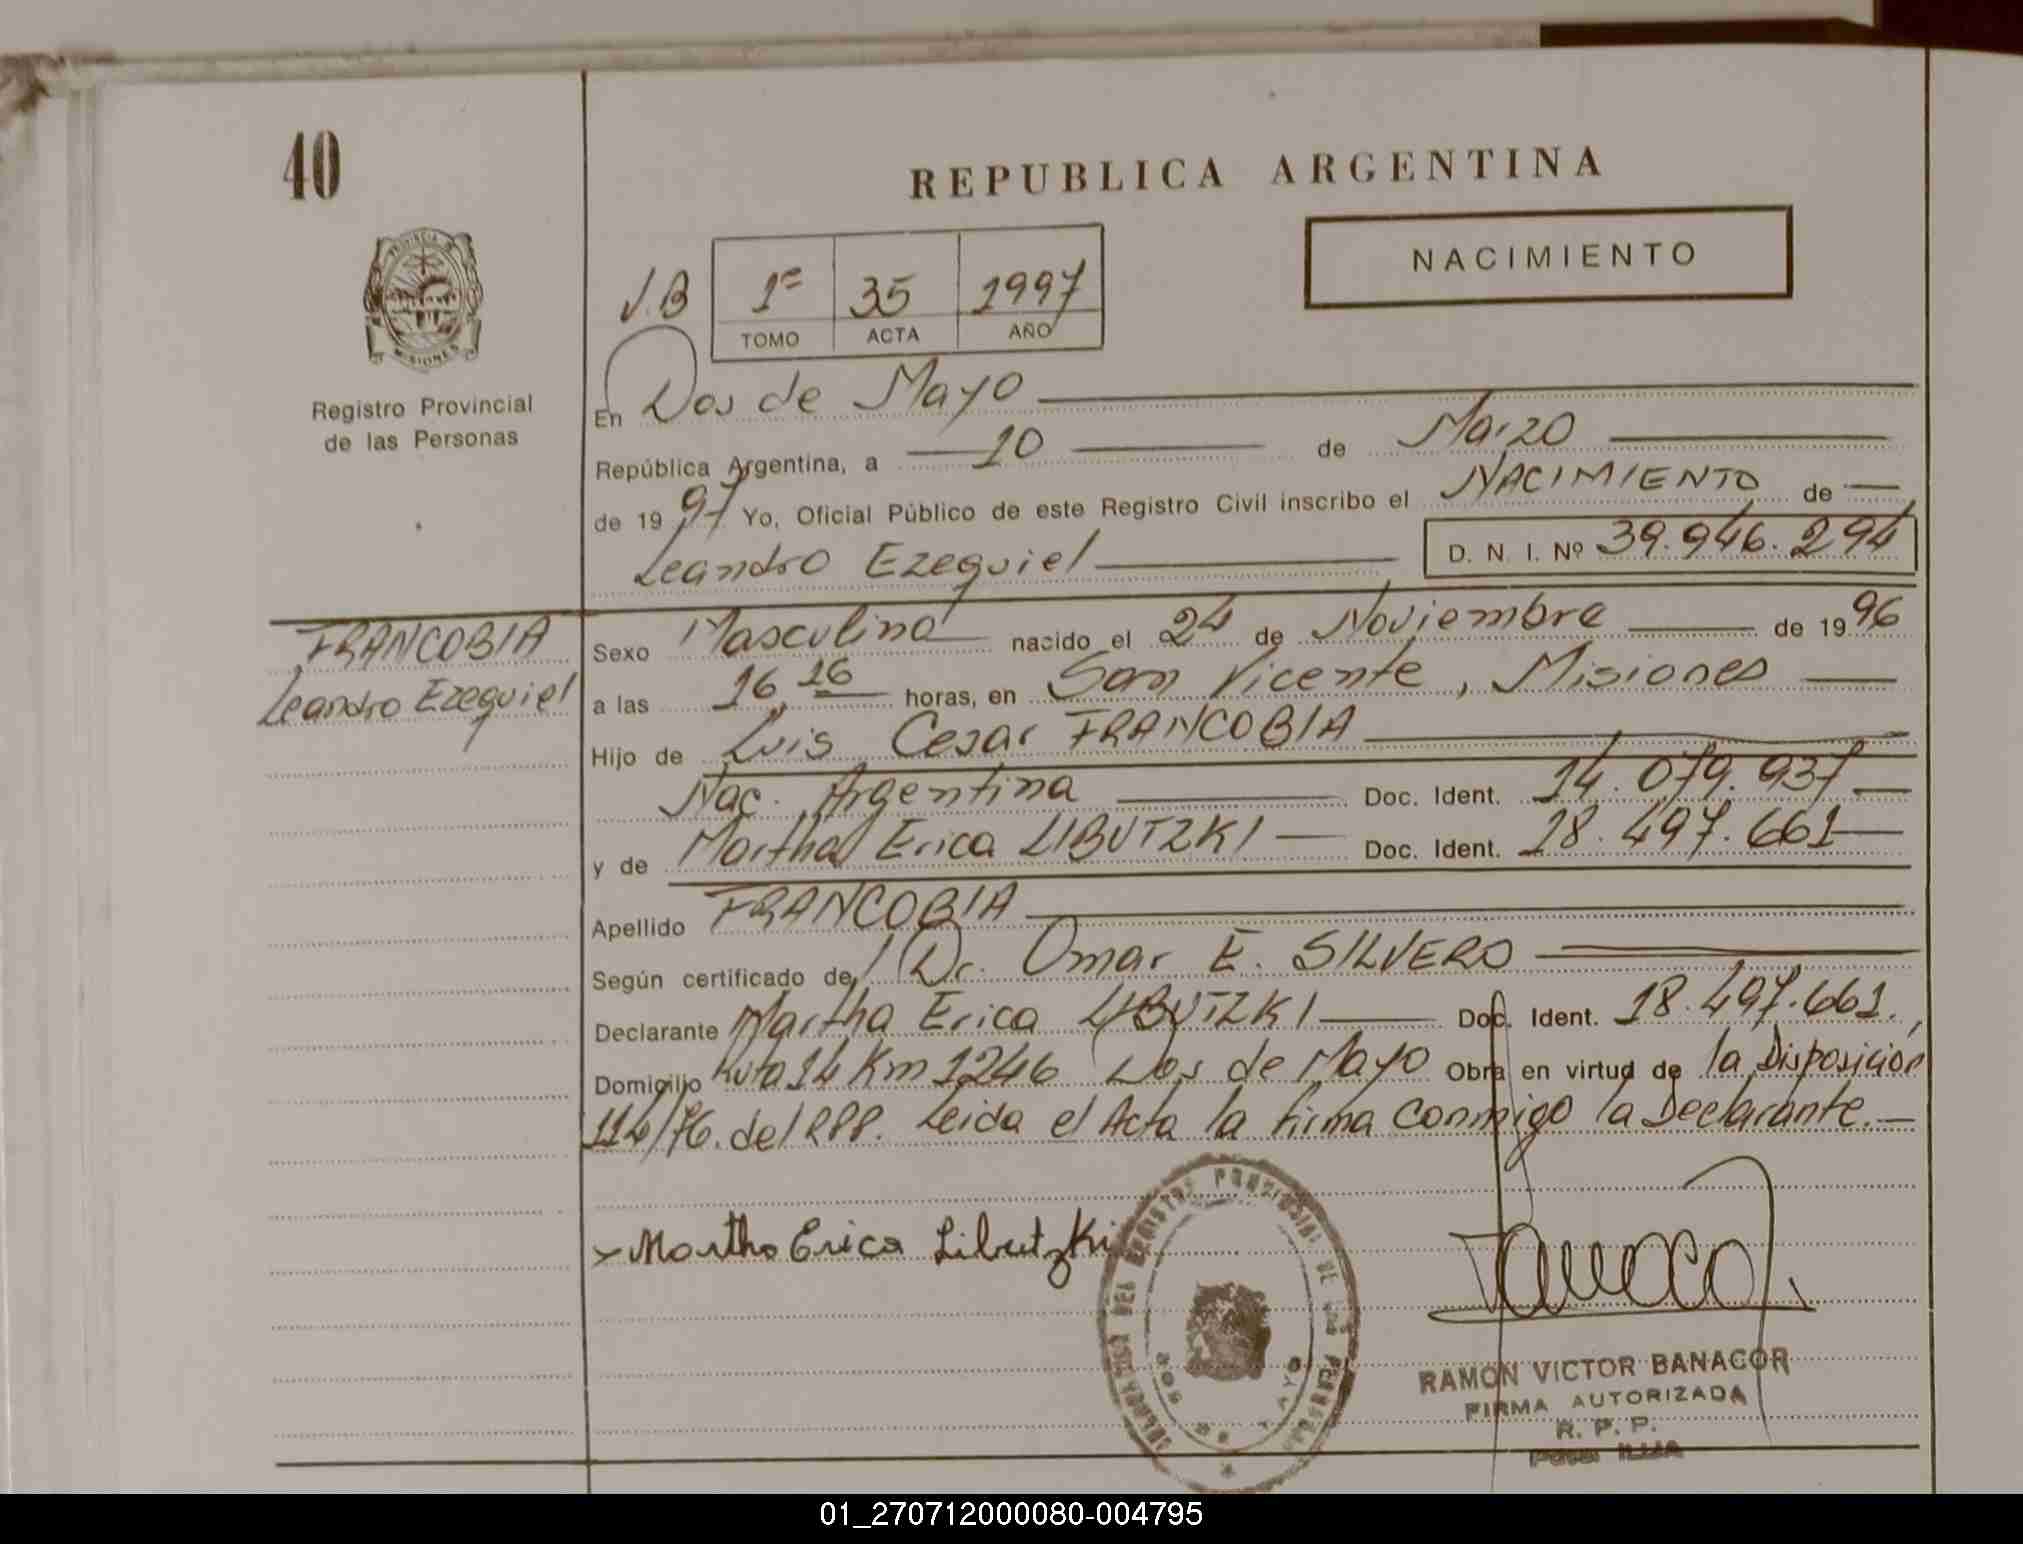 40
REPUBLICA ARGENTINA
NACIMIENTO
PROVINCIA DE
MISIONES
Registro Provincial
de las Personas
J.B
1º 35 1997
TOMO ACTA AÑO
En Dos de Mayo
República Argentina, a 10 de Marzo
de 1997 Yo, Oficial Público de este Registro Civil inscribo el NACIMIENTO de
Leandro Ezequiel D. N. I. Nº 39.946.294
FRANCOBIA
Leandro Ezequiel
Sexo Masculino nacido el 24 de Noviembre de 1996
a las 16,16 horas, en San Vicente, Misiones
Hijo de Luis Cesar FRANCOBIA
Nac. Argentina Doc. Ident. 14.079.937
y de Martha Erica LIBUTZKI Doc. Ident. 18.497.661
Apellido FRANCOBIA
Según certificado de Dr. Omar E. SILVERO
Declarante Martha Erica LIBUTZKI Doc. Ident. 18.497.661.
Domicilio Ruta 14 Km 1246 Dos de Mayo Obra en virtud de la Disposición
114/76. del RPP. Leida el Acta la firma conmigo la Declarante.
x Martha Erica Libutzki
DEL REGISTRO PROVINCIAL DE LAS PERSONAS
DOS DE MAYO
RAMON VICTOR BANACOR
FIRMA AUTORIZADA
R. P. P.
01_270712000080-004795